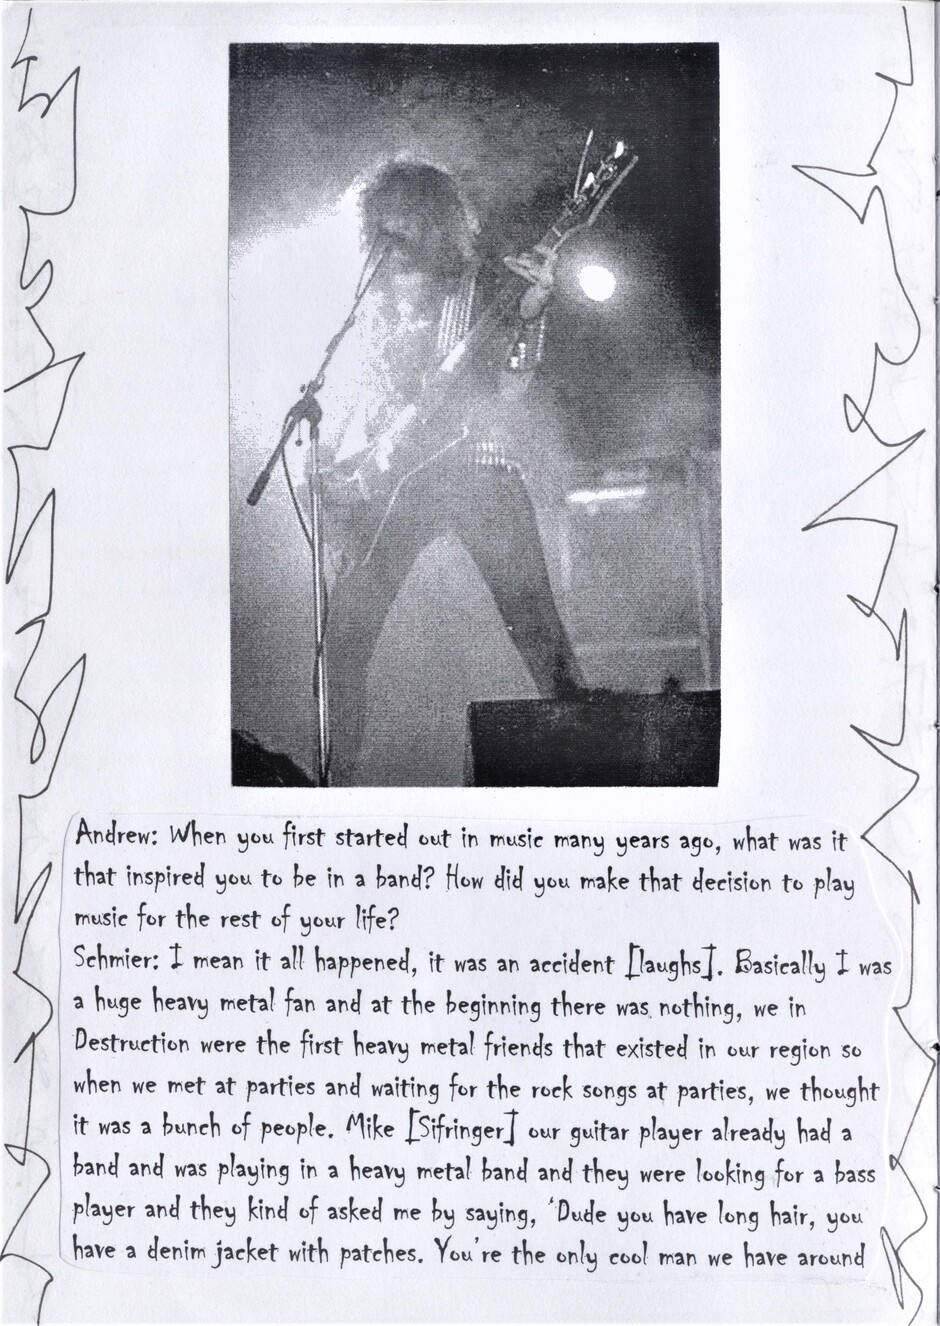 Andrew: When you first started out in music many years ago, what was it
that inspired you to be in a band? How did you make that decision to play
music for the rest of your life?
Schmier: I mean it all happened, it was an accident [laughs]. Basically I was
a huge heavy metal fan and at the beginning there was nothing, we in
Destruction were the first heavy metal friends that existed in our region so
when we met at parties and waiting for the rock songs at parties, we thought
it was a bunch of people. Mike [Sifringer] our guitar player already had a
band and was playing in a heavy metal band and they were looking for a bass
player and they kind of asked me by saying, 'Dude you have long hair, you
have a denim jacket with patches. You're the only cool man we have around